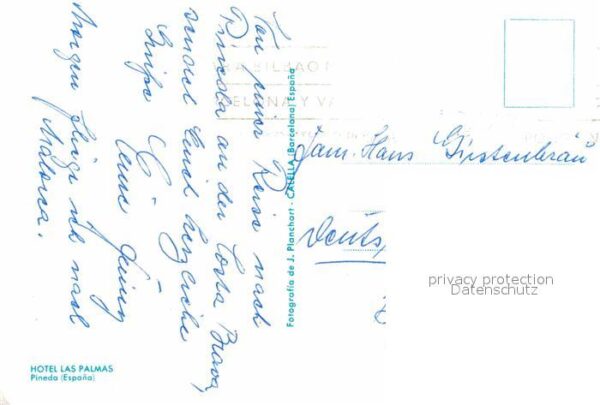 Von einer Reise nach
Pineda an der Costa Brava,
sendet Euch herzliche
Grüße
Eure
Morgen fliege ich nach
Mallorca.
HOTEL LAS PALMAS
Pineda (España)
Fotografía de J. Planchart - CALELLA (Barcelona) España
BILBAO
Y VA
Fam. Hans Fürstenbräu
Deuts
privacy protection
Datenschutz